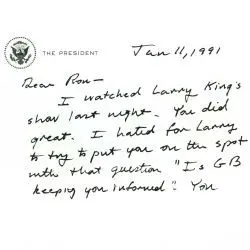 THE PRESIDENT
Jan 11, 1991
Dear Ron—
I watched Larry King's
show last night. You did
great. I hated for Larry
to try to put you on the spot
with that question "Is GB
keeping you informed". You